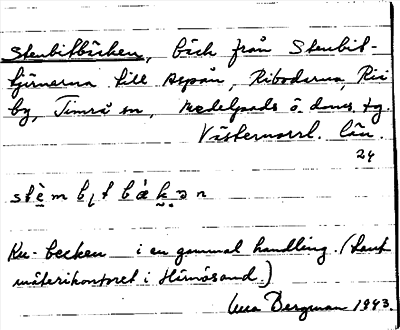 Stenbitbäcken, bäck från Stenbit-
tjärnarna till Aspån, Ribodarna, Rii
by, Timrå sn, Medelpads ö. doms. tg.
Västernorrl. län.
24
i en gammal handling. (Lant
mäterikontoret i Härnösand.)
Bergman 1943.